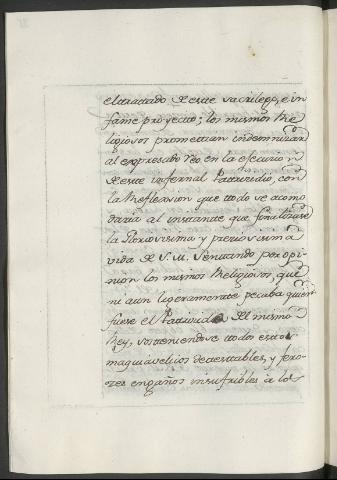 el tratado de este sacrilego, e in
fame proyecto; los mismos Re
ligiosos prometian indemnizar
al expresado Reo en la efecucion
de este infernal Patricidio, con
la Reflexion que todo se acomo
daria al instante que finalizase
la Religiosisima y preciosisima
vida de S.M. Sentando por opi
nion los mismos Religiosos, que
ni aun ligeramente pecaba quien
fuese el Patricida del mismo
Rey, sosteniendose todos estos
maquiavelicos detestables, y fero
zes engaños insufribles á los